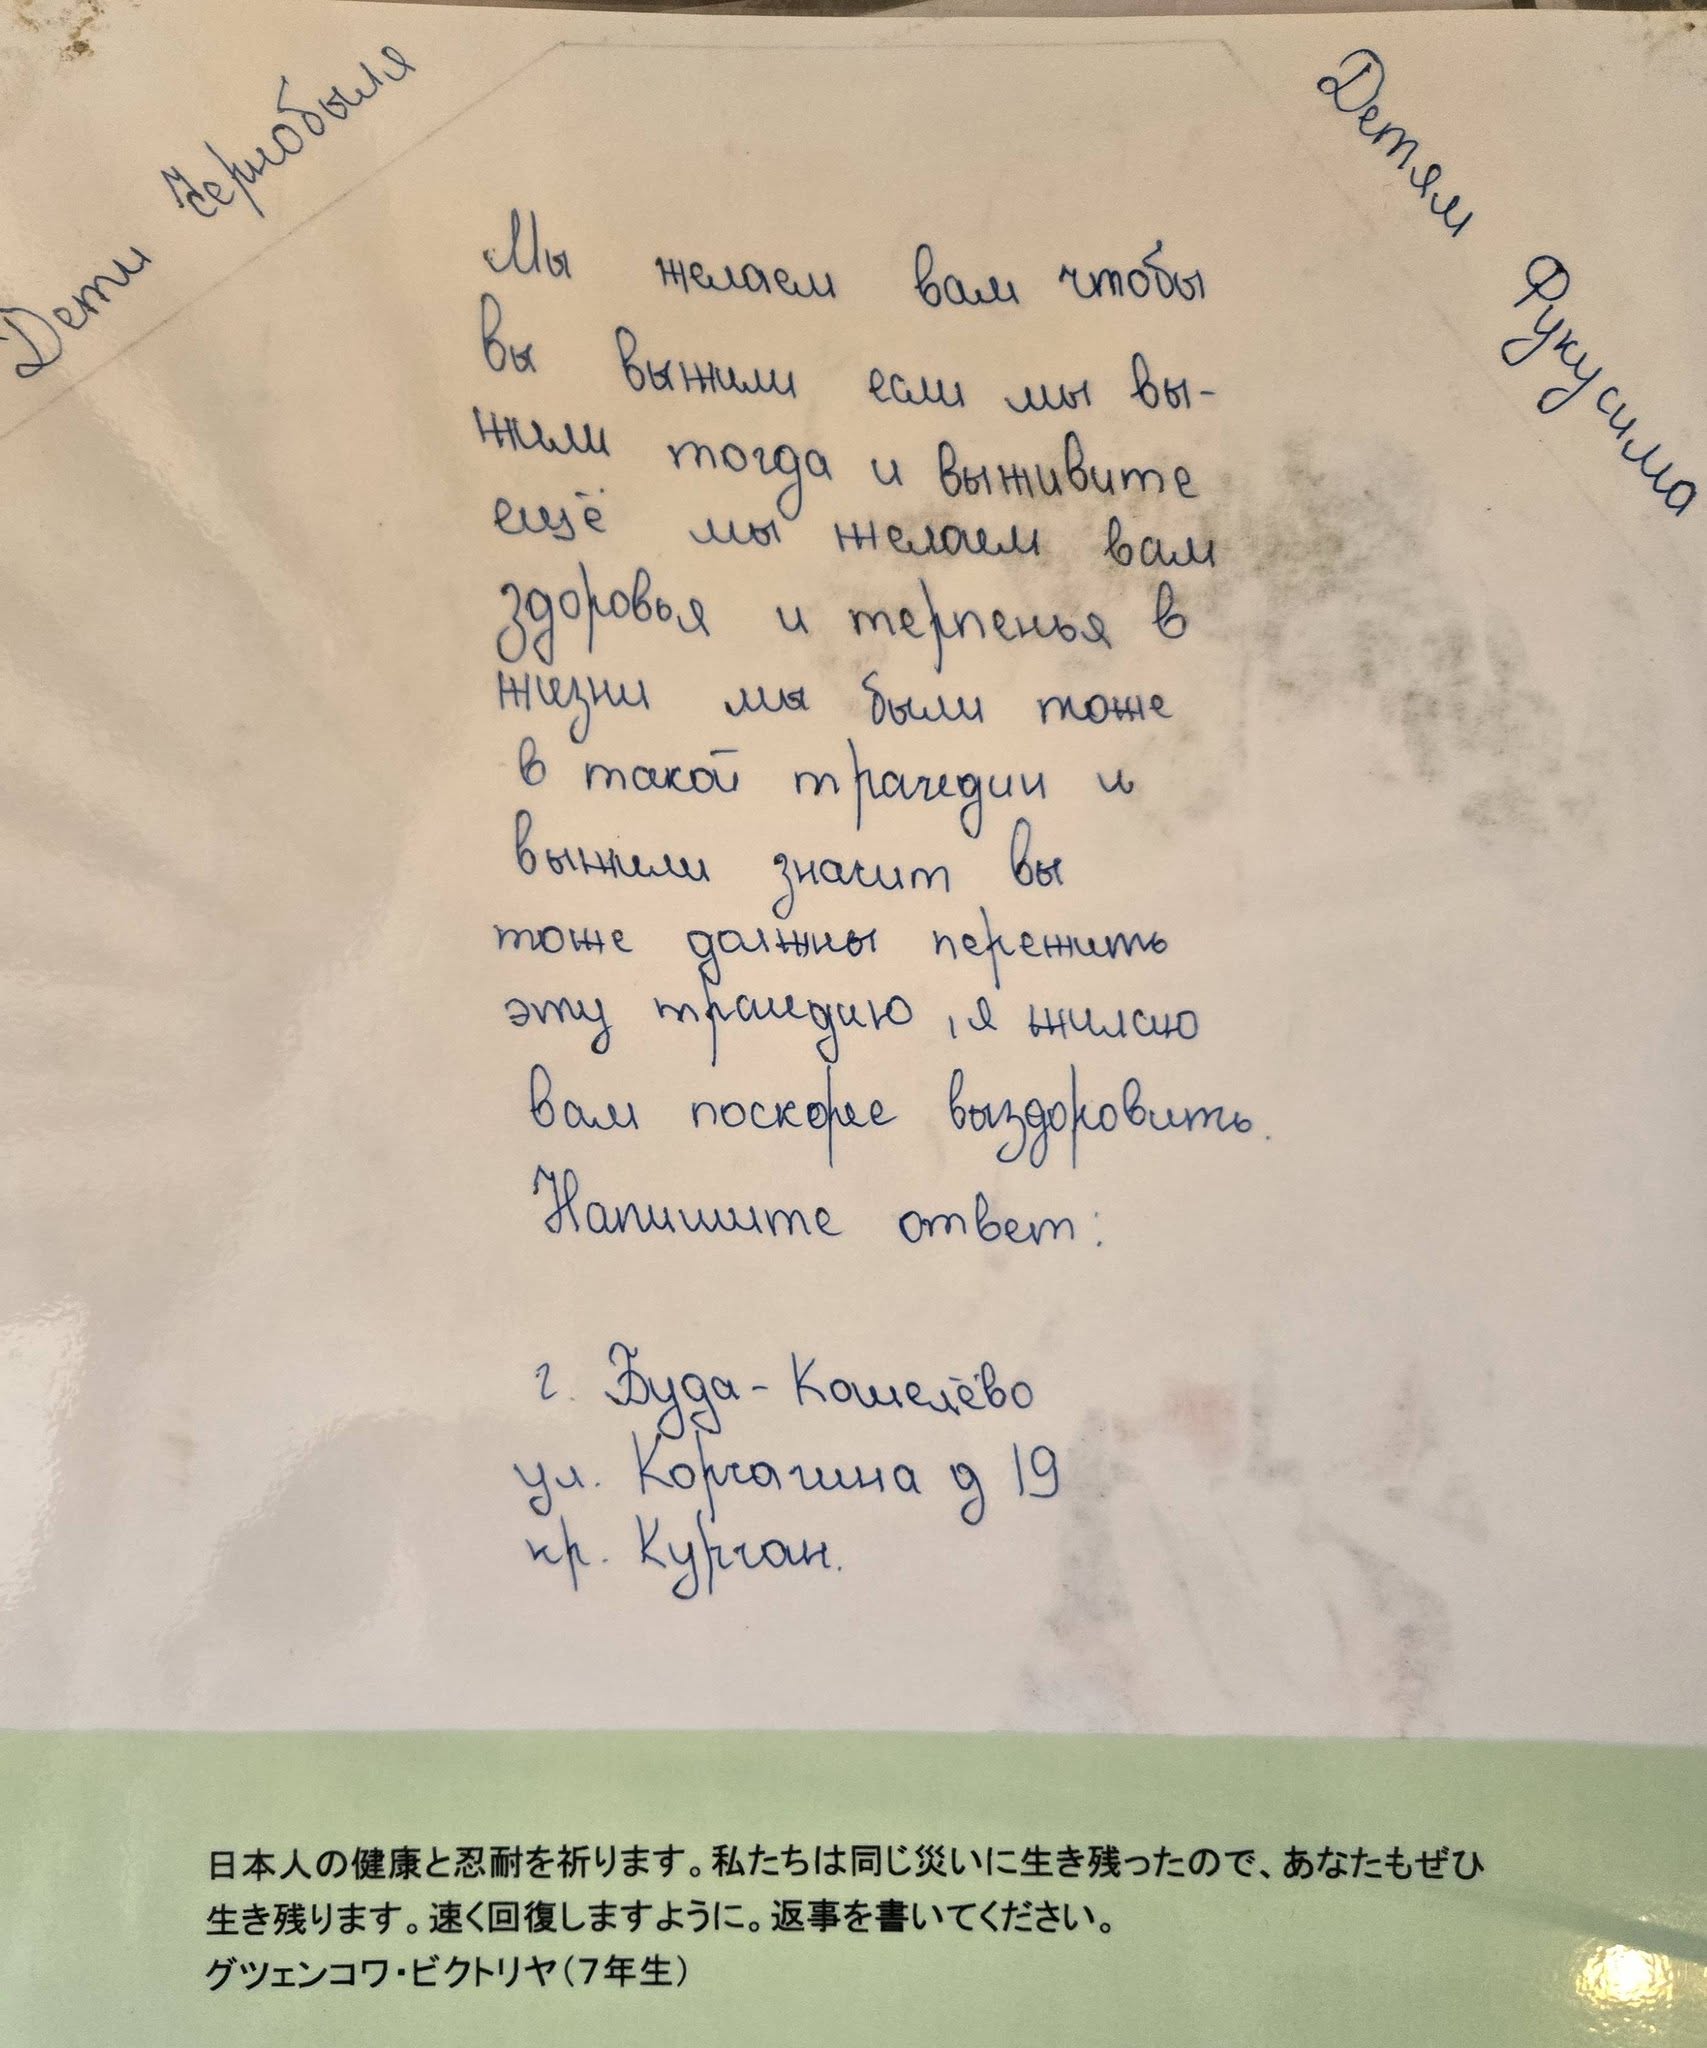 Дети Чернобыля
Детям Фукусима
Мы желаем вам чтобы
вы выжили если мы вы-
жили тогда и выживите
ещё мы желаем вам
здоровья и терпенья в
жизни мы были тоже
в такой трагедии и
выжили значит вы
тоже должны пережить
эту трагедию, я жилаю
вам поскорее выздоровить.
Напишите ответ:
г. Буда-Кошелёво
ул. Корчагина д 19
кр. Курган.
日本人の健康と忍耐を祈ります。私たちは同じ災いに生き残ったので、あなたもぜひ
生き残ります。速く回復しますように。返事を書いてください。
グツェンコワ・ビクトリヤ(7年生)